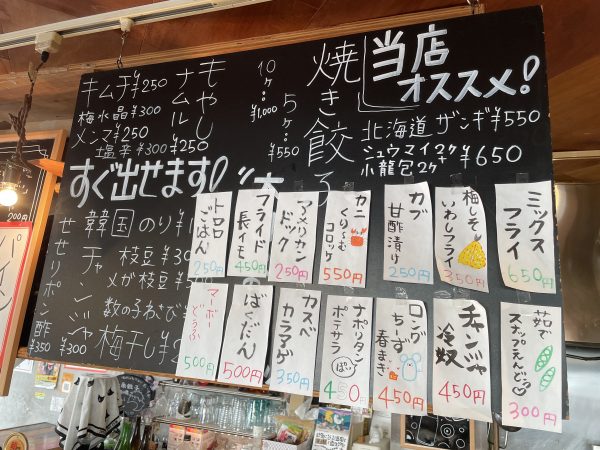 当店
オススメ!
北海道 ザンギ ¥550
シュウマイ2ケ+
小龍包2ケ
¥650
焼き餃子
5ケ… ¥550
10ケ… ¥1,000
もやし
ナムル
¥250
キムチ ¥250
梅水晶 ¥300
メンマ ¥250
塩辛 ¥300
すぐ出せます!
韓国のり
枝豆
メガ枝豆
数の子わさび
梅干し
チャンジャ
¥300
せせりポン酢
¥350
ミックス
フライ
650円
梅しそ
いわしフライ
350円
カブ
甘酢漬け
250円
カニ
くり~む
コロッケ
550円
アメリカン
ドック
250円
フライド
長イモ
450円
トロロ
ごはん
250円
茹で
スナップえんどう
300円
チャンジャ
冷奴
450円
ロング
ちーず
春まき
450円
ナポリタン
ポテサラ
450円
カスベ
カラアゲ
350円
ばくだん
500円
マーボー
どうふ
500円
200円